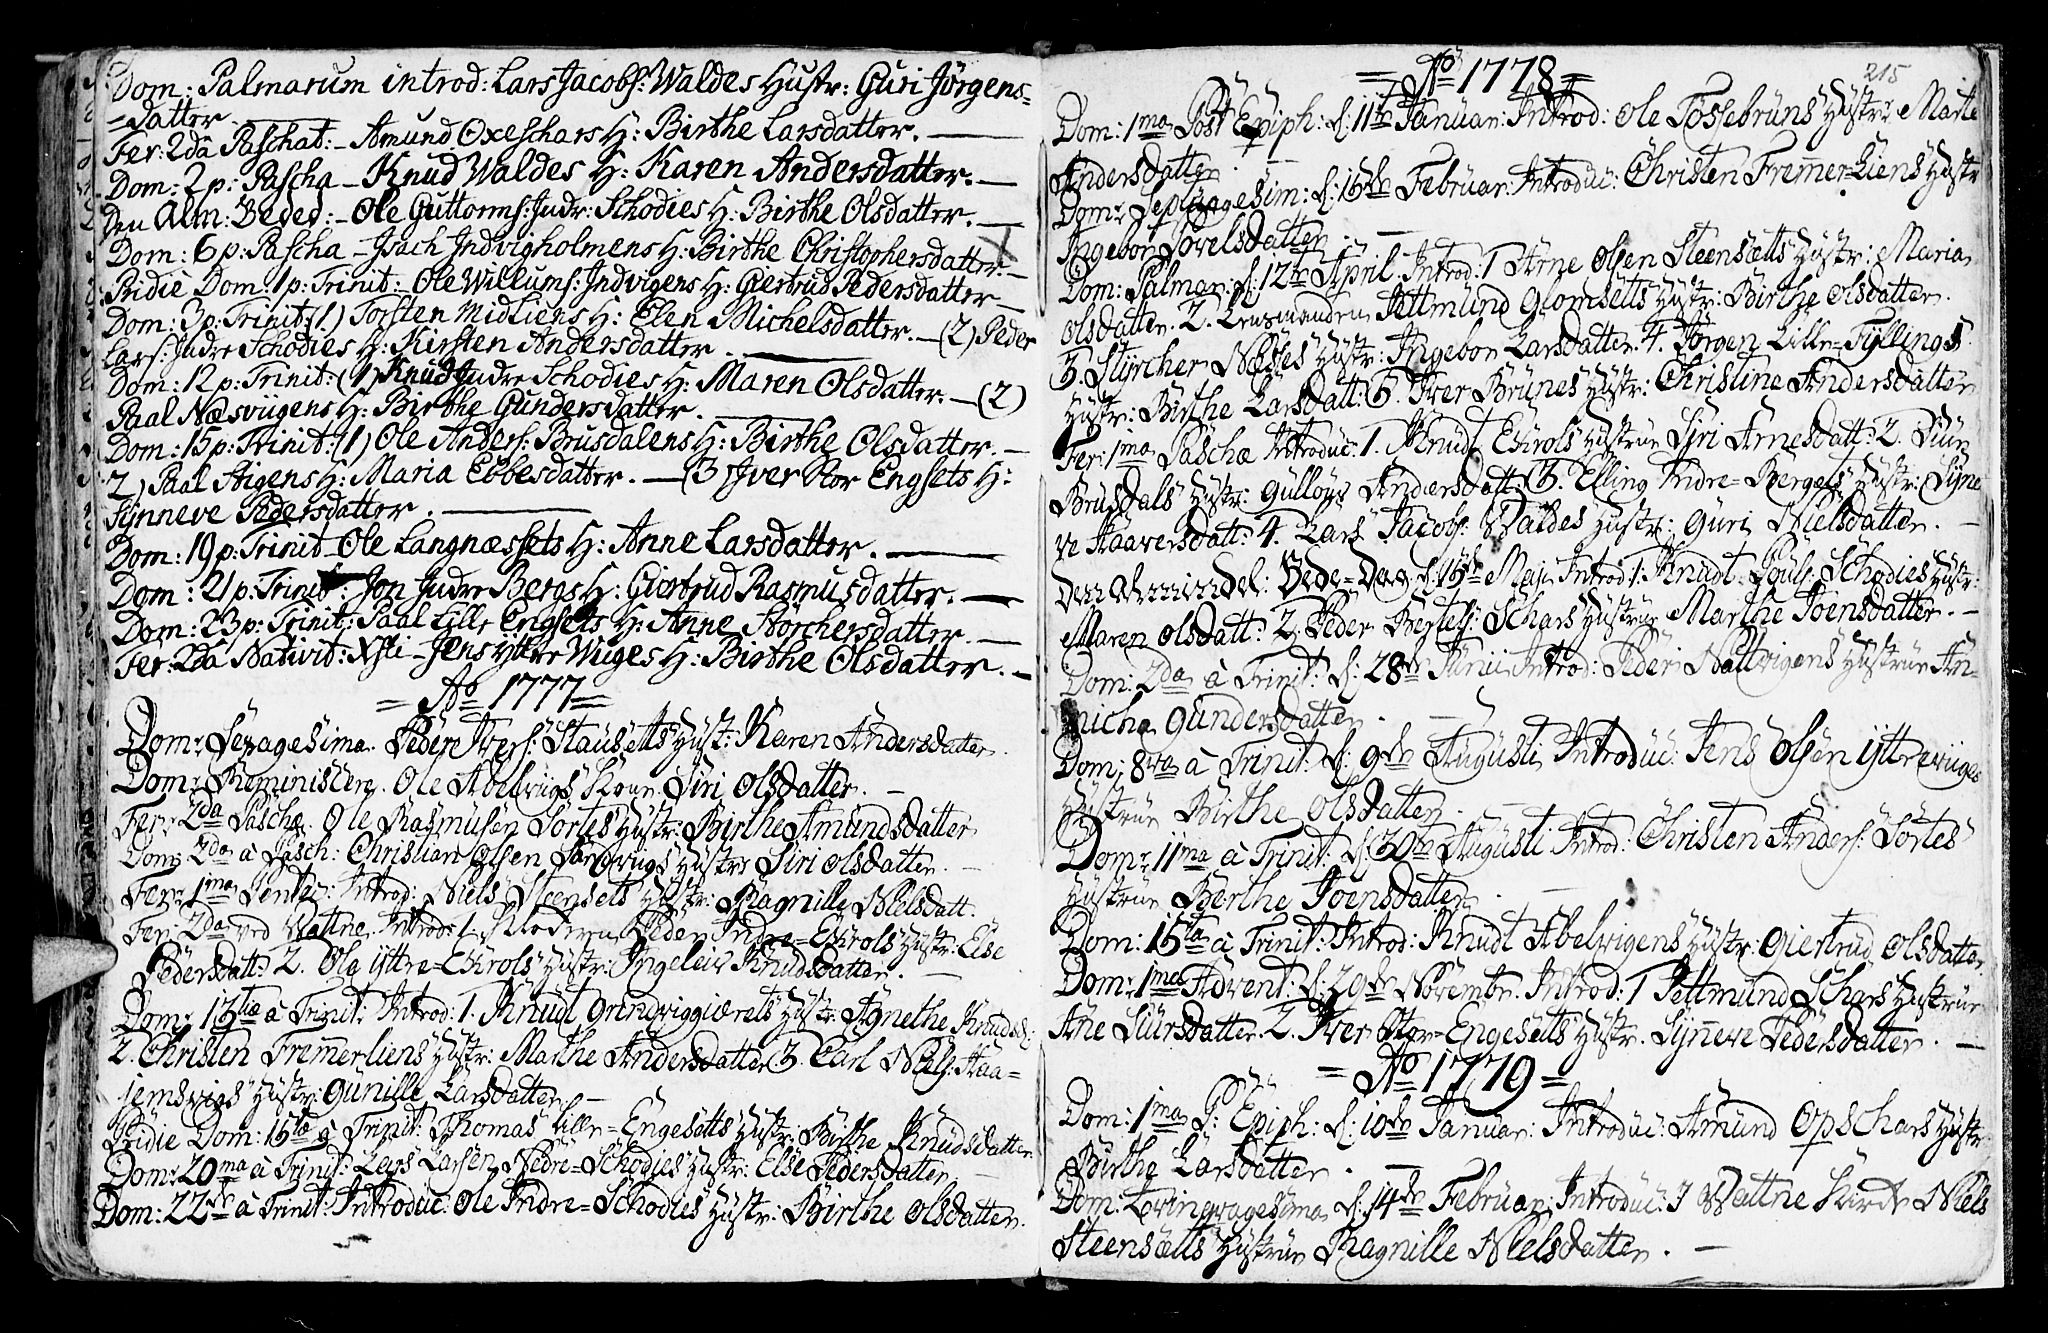 Dom: Palmarum introd: Lars Jacobs: Waldes Hustr: Guri Jörgens-
=Datter
Fer: 2da Paschat: - Amund Oxeschars H: Birthe Larsdatter.
Dom: 2 p: Pascha - Knud Waldes H: Karen Andersdatter.
Den Alm: Beded: - Ole Guttorms: Indr: Schodies H: Birthe Olsdatter.
Dom: 6 p: Pascha - Isach Indvigholmens H: Birthe Christophersdatter.
Pridie Dom: 1 p: Trinit: - Ole Willums: Indvigens H: Giertrud Pedersdatter
Dom: 3 p: Trinit: (1) Torsten Midliens H: Elen Michelsdatter. - (2) Peder
Lars: Indre Schodies H: Kirsten Andersdatter
Dom: 12 p: Trinit: (1) Knud Indre Schodies H: Maren Olsdatter. - (2)
Paal Næsviigens H: Birthe Gundersdatter.
Dom: 15 p: Trinit: (1) Ole Anders: Brusdalens H: Birthe Olsdatter. -
2) Paal Stigens H: Maria Ebbesdatter. - (3 Iver Stor Engsets H:
Synneve Pedersdatter.
Dom: 19 p: Trinit - Ole Langnæssets H: Anne Larsdatter.
Dom: 21 p: Trinit: Jon Indre Bergs H: Giertrud Rasmusdatter.
Dom: 23 p: Trinit: Paal Lille Engsets H: Anne Störchersdatter.
Fer: 2da Nativit: Xsti - Jens Yttre Wiiges H: Birthe Olsdatter.
= Ao 1777 =
Dom: Sexagesima. Peder Ivers: Stausetts Hust: Karen Andersdatter.
Dom: Reminiscere. Ole Abelviigs Kone Siri Olsdatter.
Fer: 2da Paschæ. Ole Rasmusen Sortes Hustr: Birthe Amundsdatter
Dom: 2da à Pasch: Christian Olsen Sandvigs Hustr: Siri Olsdatter.
Fer: 1ma Pentec: Introd: Niels Steensets Hustr: Ragnille Nielsdatt.
Fer: 2da ved Wattne Introd: 1. Peder Indre=Exrols Hustr: Else
Pedersdatt: 2. Ole Yttre=Exrols Hustr: Ingeleiv Knudsdatter.
Dom: 13tiæ à Trinit: Introd: 1. Knud Grindviggierets Hustr: Agnethe Knudsd:
2. Christen Fremerliens Hustr: Marthe Andersdatter 3. Carl Niels: Haa=
jemsvigs Hustr: Gunille Larsdatter.
Pridie Dom: 15tæ à Trinit: Thomas Lille=Engesetts Hustr: Birthe Knudsdatter.
Dom: 20ma à Trinit: Lars Larsen Nedre=Schodies Hustr: Else Pedersdatter.
Dom: 22de à Trinit: Introduc: Ole Indre=Schodies Hustr: Birthe Olsdatter.
= Ao 1778 =
215
Dom: 1ma Post Epiph: d: 11te Januar: Introd: Ole Fossebruns Hustr: Marte
Andersdatter.
Dom: Septuagesim: d: 15de Februar: Introduc: Christen Fremer=Liens Hustr
Ingebor Povelsdatter.
Dom: Palmar: d: 12te April. Introd: 1 Arne Olsen Steensætts Hustr: Maria
Olsdatter. 2. Lensmanden Pettmund Glomsetts Hustr: Birthe Olsdatter.
3. Styrcher Neses Hustr: Ingebor Larsdatter. 4. Jörgen Lille=Fyllings
Hustr: Birthe Larsdatt: 5. Iver Brunes Hustr: Christine Andersdatter
Fer: 1ma Paschæ Introduc: 1. Knudt Exrols Hustrue Siri Arnesdatt: 2.
Brusdals Hustr: Gulloug Andersdatt: 3. Elling Indre=Bergets Hustr: Syne
ve Haaversdatt: 4. Lars Jacobs: Waldes Hustr: Guri Nielsdatter.
Den Almindel: Bede=Dag d: 15de Maji Introd: 1. Knudt Pouls: Schodies Hustr:
Maren Olsdatt: 2. Peder Bertels: Schars Hustrue Marthe Joensdatter.
Dom: 2da à Trinit: d: 28de Junii Introd: Peder Nattvigens Hustrue An-
nicha Gundersdatter.
Dom: 8va à Trinit: d: 9de Augusti Introduc: Jens Olsen Yttreviiges
Hustrue Birthe Olsdatter.
Dom: 11ma à Trinit: d: 30te Augusti Introd: Christen Anders: Sortes
Hustrue Berthe Joensdatter.
Dom: 15ta à Trinit: Introd: Knudt Abelvigens Hustr: Giertrud Olsdatter
Dom: 1ma Advent: d: 29de Novembr. Introd: 1 Pettmund Schars Hustrue
Ane Siursdatter. 2. Iver Stor=Engesætts Hustr. Synneve Pedersdatter.
= Ao 1779 =
Dom: 1ma P: Epiph: d: 10de Januar: Introduc: Amund Opschars Hustr
Birthe Larsdatter.
Dom: Qvinqvagesima d: 14de Februar: Introduc: I Wattne Kirche Niels
Steensætts Hustrue Ragnille Nielsdatter.